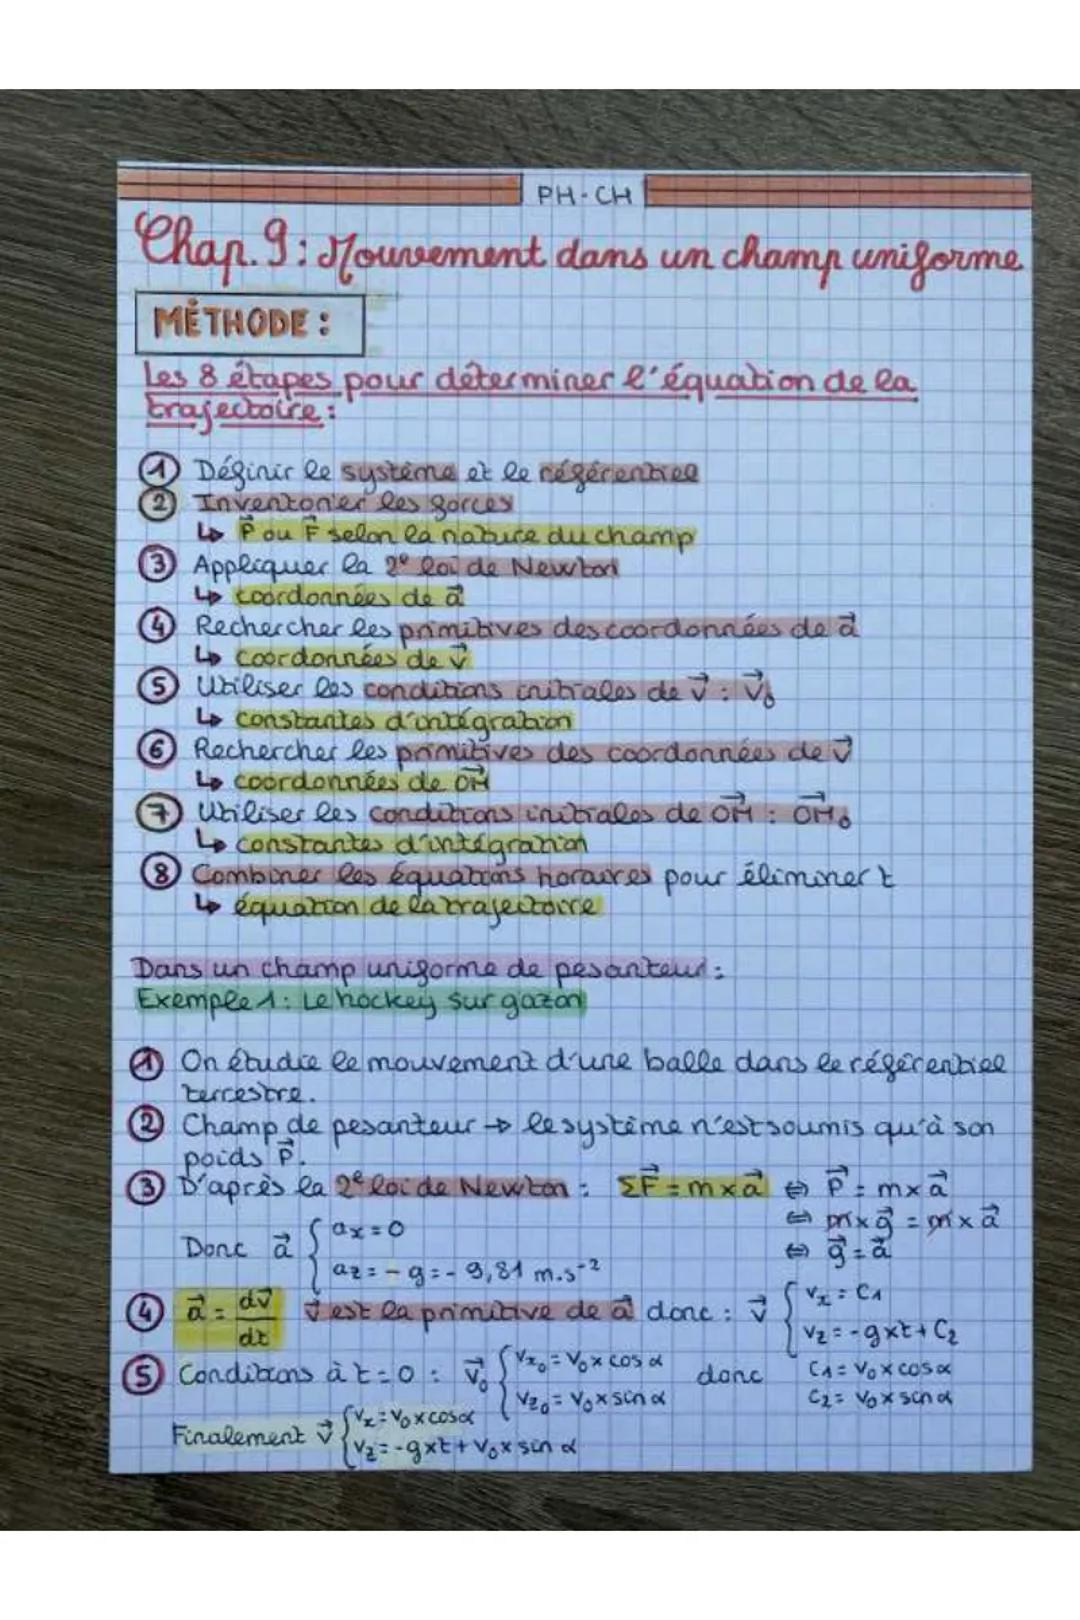 PH-CH
Chap.9: Mouvement dans un champ uniforme
MÉTHODE :
Les 8 étapes pour déterminer l'équation de la
trajectoire :
① Définir le système et le référentiel
② Inventorier les forces
↳ P⃗ ou F⃗ selon la nature du champ
③ Appliquer la 2e loi de Newton
↳ coordonnées de a⃗
④ Rechercher les primitives des coordonnées de a⃗
↳ coordonnées de v⃗
⑤ Utiliser les conditions initiales de v⃗ : v⃗₀
↳ constantes d'intégration
⑥ Rechercher les primitives des coordonnées de v⃗
↳ coordonnées de OM⃗
⑦ Utiliser les conditions initiales de OM⃗ : OM⃗₀
↳ constantes d'intégration
⑧ Combiner les équations horaires pour éliminer t
↳ équation de la trajectoire
Dans un champ uniforme de pesanteur :
Exemple 1 : Le hockey sur gazon
① On étudie le mouvement d'une balle dans le référentiel
terrestre.
② Champ de pesanteur → le système n'est soumis qu'à son
poids P⃗.
③ D'après la 2e loi de Newton : ΣF⃗ = m x a⃗ ⇔ P⃗ = m x a⃗
⇔ m x g⃗ = m x a⃗
Donc a⃗ { ax = 0 ⇔ g⃗ = a⃗
az = - g = - 9,81 m.s⁻²
④ a⃗ = dv⃗/dt v⃗ est la primitive de a⃗ donc : v⃗ { vx = C1
vz = -g x t + C2
⑤ Conditions à t = 0 : v⃗₀ { vx₀ = v₀ x cos α donc C1 = v₀ x cos α
vz₀ = v₀ x sin α C2 = v₀ x sin α
Finalement v⃗ { vx = v₀ x cos α
vz = -g x t + v₀ x sin α